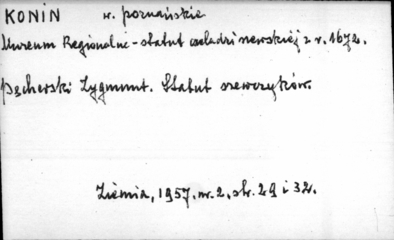 KONIN w. poznańskie
Muzeum Regionalne - statut czeladzi szewskiéj z r. 1672.
Pęcherski Zygmunt. Statut szewczyków.
Ziemia, 1957. nr. 2. str. 29 i 32.